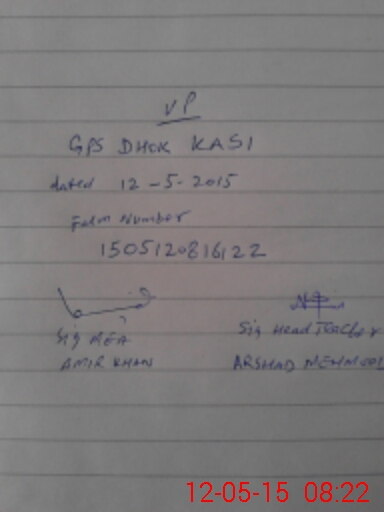 VP
GPS DHOK KASI
dated 12-5-2015
Form Number
1505120816122
Sig MEA
Sig Head Teacher
AMIR KHAN
ARSHAD MEHMOOD
12-05-15 08:22